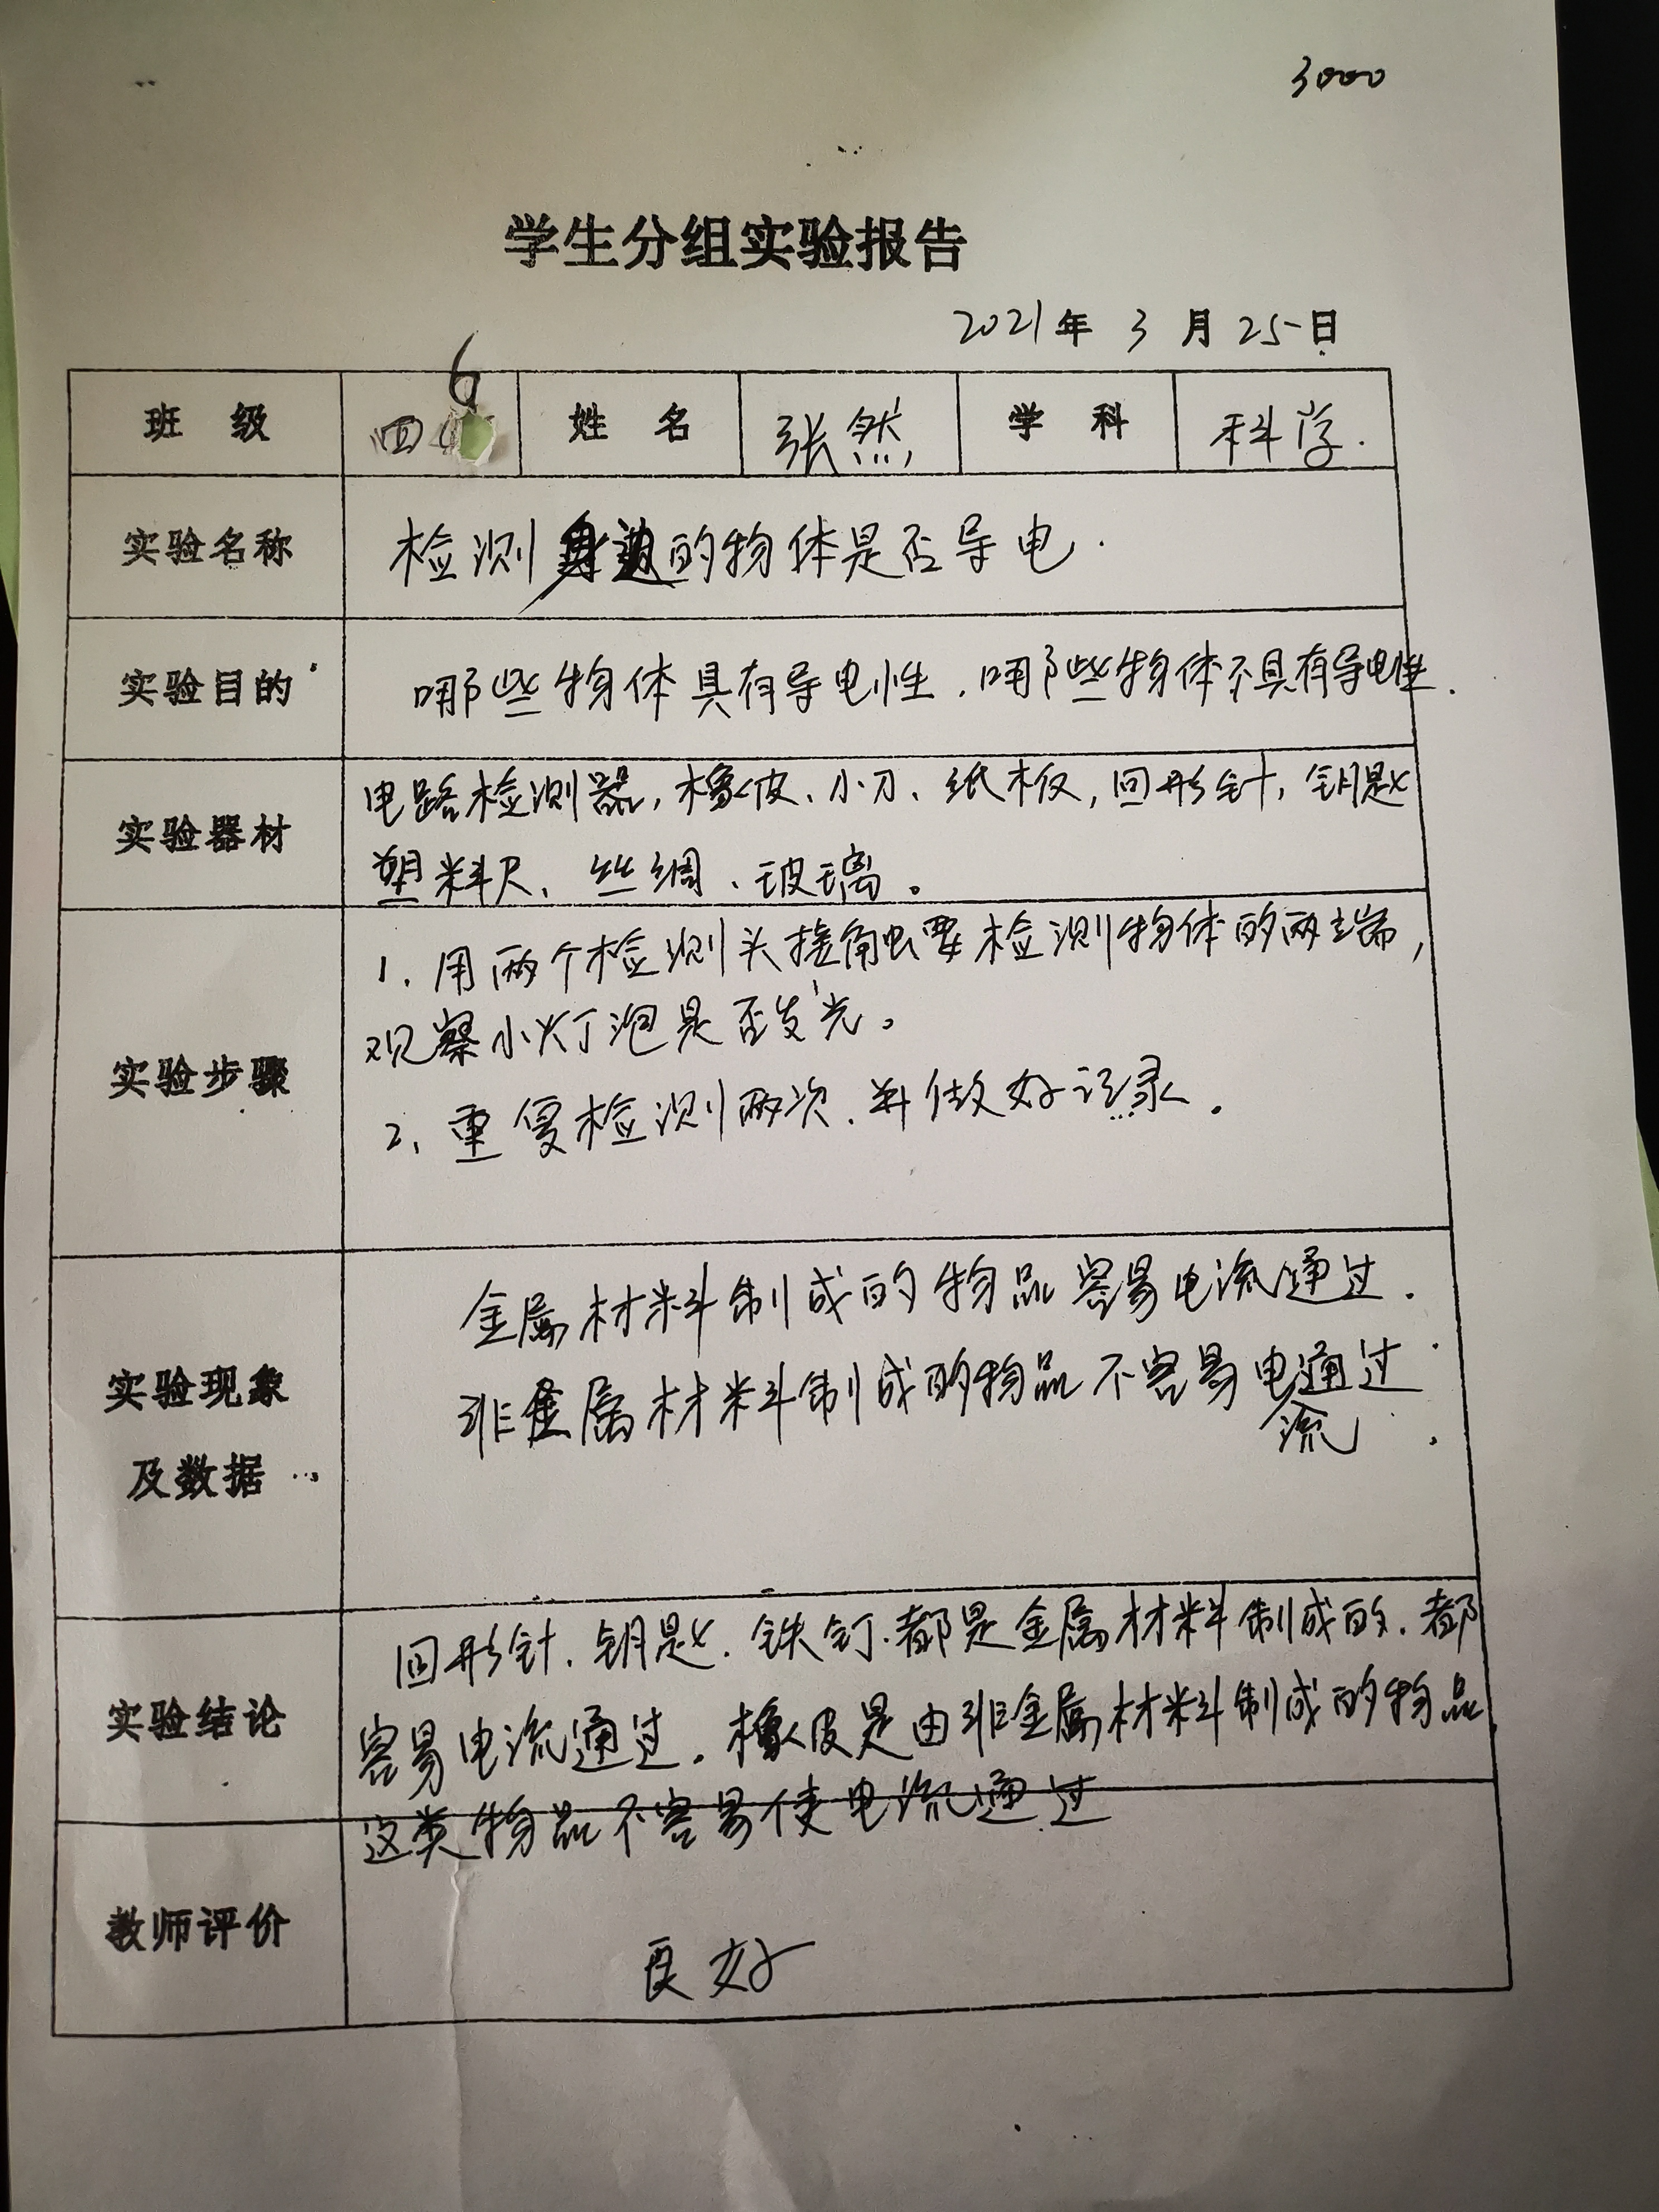 3000
学生分组实验报告
2021年 3月 25日
班 级 四 6 姓 名 张然 学 科 科学.
实验名称 检测身边的物体是否导电.
实验目的 哪些物体具有导电性.哪些物体不具有导电性.
实验器材
电路检测器,橡皮、小刀、纸板,回形针,钥匙
塑料尺、丝绸、玻璃。
实验步骤
1.用两个检测头接触要检测物体的两端,
观察小灯泡是否发光。
2、重复检测两次、并做好记录.
实验现象
及数据
金属材料制成的物品容易电流通过.
非金属材料制成的物品不容易电流通过.
实验结论
回形针.钥匙.铁钉.都是金属材料制成的.都
容易电流通过.橡皮是由非金属材料制成的物品,
这类物品不容易使电流通过
教师评价 良好